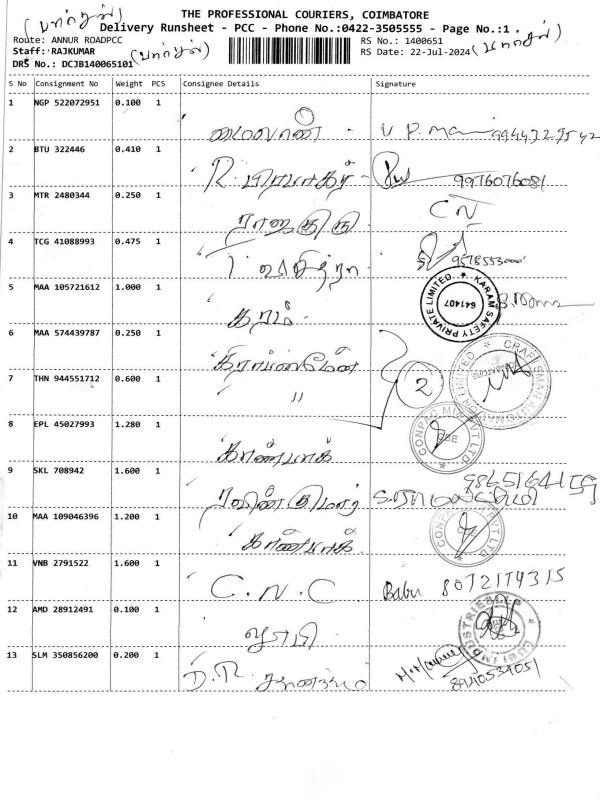 THE PROFESSIONAL COURIERS, COIMBATORE
(பார்சல்) Delivery Runsheet - PCC - Phone No.:0422-3505555 - Page No.:1
Route: ANNUR ROADPCC RS No.: 1400651
Staff: RAJKUMAR (பார்சல்) RS Date: 22-Jul-2024 (பார்சல்)
DRS No.: DCJB140065101
S No Consignment No Weight PCS Consignee Details Signature
1 NGP 522072951 0.100 1
V P. Mani 9944329542
2 BTU 322446 0.410 1
R. பிரபாகர் 9976076081
3 MTR 2480344 0.250 1
ராஜகுரு CN
4 TCG 41088993 0.475 1
T. சுசித்ரா 9578553000
5 MAA 105721612 1.000 1
கரம் KARAM SAFETY PRIVATE LIMITED 641407
6 MAA 574439787 0.250 1
கிராப்ட்ஸ்மேன் 2
7 THN 944551712 0.600 1
"
8 EPL 45027993 1.280 1
கான்பாக்
9 SKL 708942 1.600 1
ரவின்குமார்
10 MAA 109046396 1.200 1
கான்பாக்
11 VNB 2791522 1.600 1
C.N.C Babu 8072174315
12 AMD 28912491 0.100 1
லூபி
13 SLM 350856200 0.200 1
D.R. 8940534051